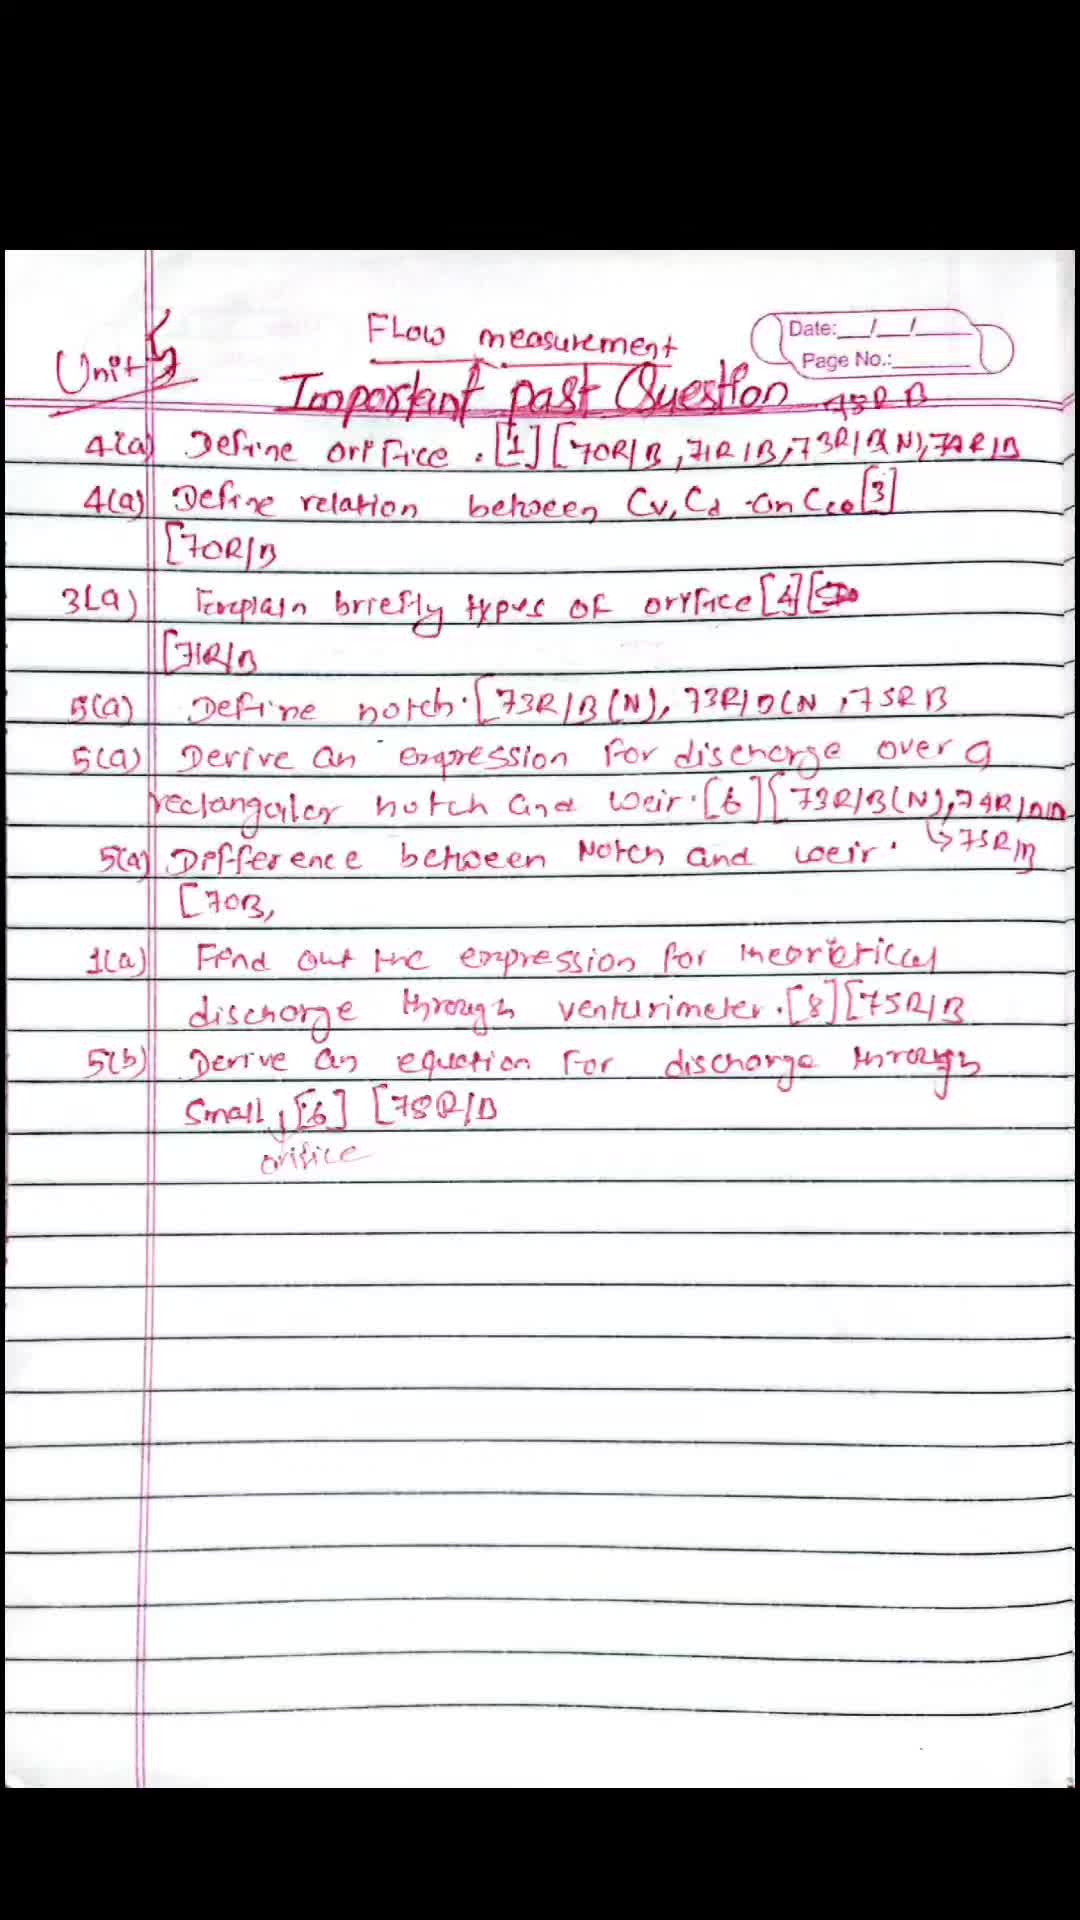 Flow measurement
Date:__/__/____
Page No.:______
Unit 5
Important past Question
75R B
4(a) Define orifice. [1] [70R/B, 71R/B, 73R/B(N), 74R/B
4(a) Define relation between Cv, Cd an Cc [3]
[70R/B
3(a) Explain briefly types of orifice [4] [
[71R/B
5(a) Define notch. [73R/B(N), 73R/B(N, 75R B
5(a) Derive an expression for discharge over a
rectangular notch and weir. [6] [73R/B(N), 74R/B
5(a) Difference between Notch and weir. ↳75R/B
[70B,
1(a) Find out the expression for theoritical
discharge through venturimeter. [8] [75R/B
5(b) Derive an equation for discharge through
small [6] [75R/B
orifice